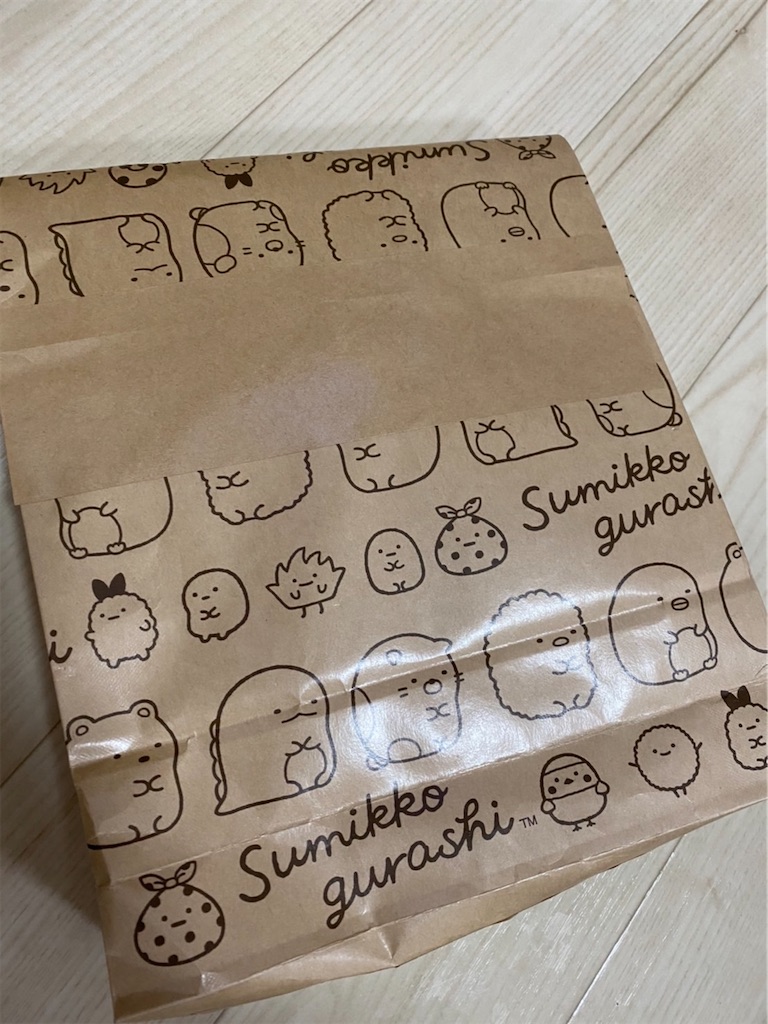 Sumikko
Sumikko
gurash
i
Sumikko
gurashi™